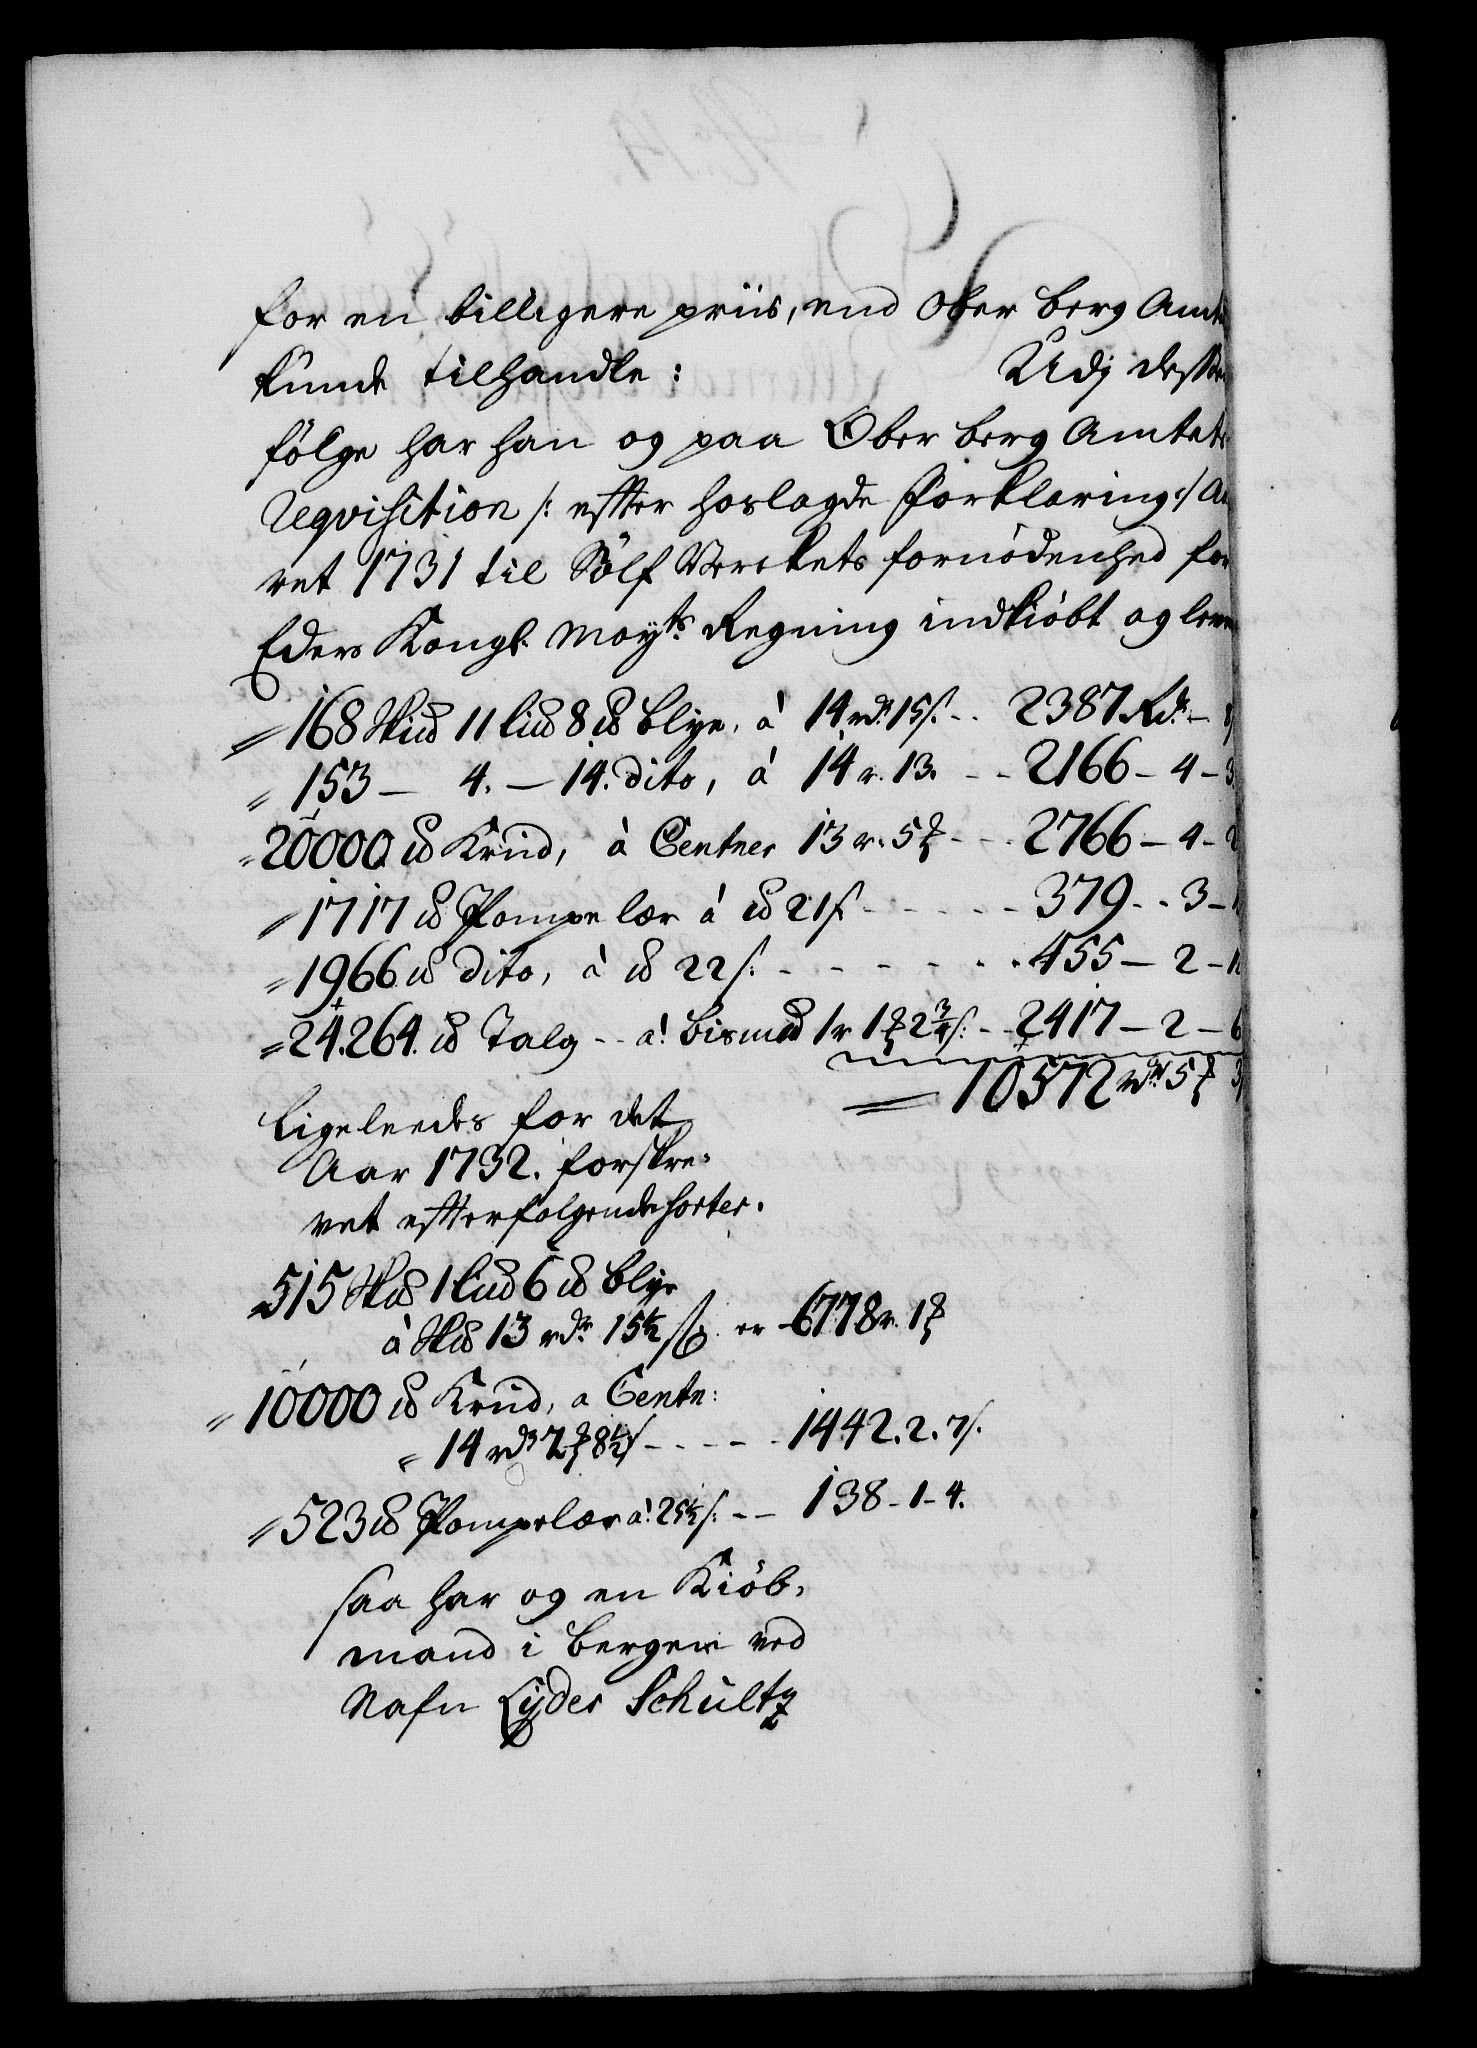 for en billigere priis, end Ober Berg Amt
kunde tilhandle: Udj desse
fölge har han og paa Ober Berg Amtets
Reqvisition /: efter hoslagde Forklaring :/ A
ret 1731 til Sölf Verckets fornödenhed for
Eders Kongl. Mayts Regning indkiöbt og lev
168 Skll 11 Lll 8 ll Blye, à 14 rdr 15 s. - - 2387 Rdr -
153 - 4. - 14. dito, à 14 r. 13. - - 2166 - 4 - 3
20000 ll Krud, à Centner 13 r. 5 - - 2766 - 4 - 2
1717 ll Pompe lær à ll 21 s - - - - - 379 - - 3 - 1
1966 ll dito, à ll 22 s. - - - - - - 455 - 2 - 1
24.264. ll Talg - - à Bismll 1 r 1 2 3/4 s. - - 2417 - 2 - 6
10572 rdr 5 3
Ligeleedes for det
Aar 1732. forskre-
vet efterfölgende sorter.
515 Skll 1 Lll 6 ll Blye
à Skll 13 rdr 15 1/2 s er - 6778 r. 1
10000 ll Krud, a Centn:
14 rdr 2 8 1/2 s - - - - - 1442. 2. 7 s.
523 ll Pompelær à 25 1/2 s. - - 138 - 1 - 4.
saa har og en Kiöb-
mand i Bergen ved
Nafn Lyder Schultz